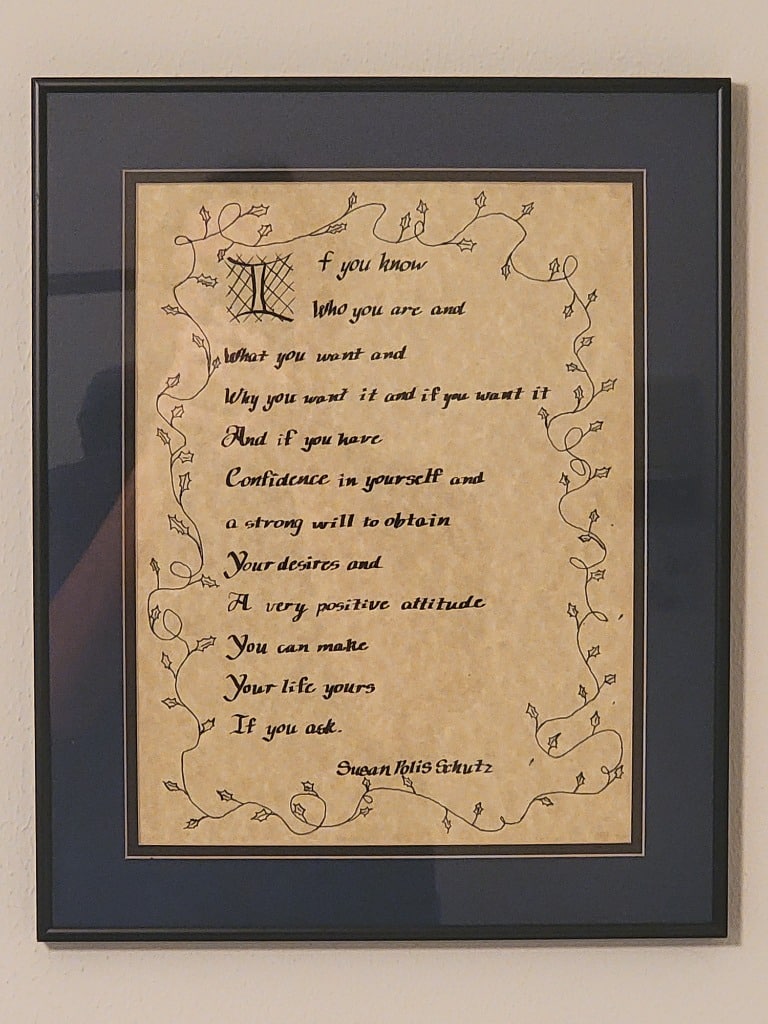 If you know
Who you are and
What you want and
Why you want it and if you want it
And if you have
Confidence in yourself and
a strong will to obtain
Your desires and
A very positive attitude
You can make
Your life yours
If you ask.
Susan Polis Schutz